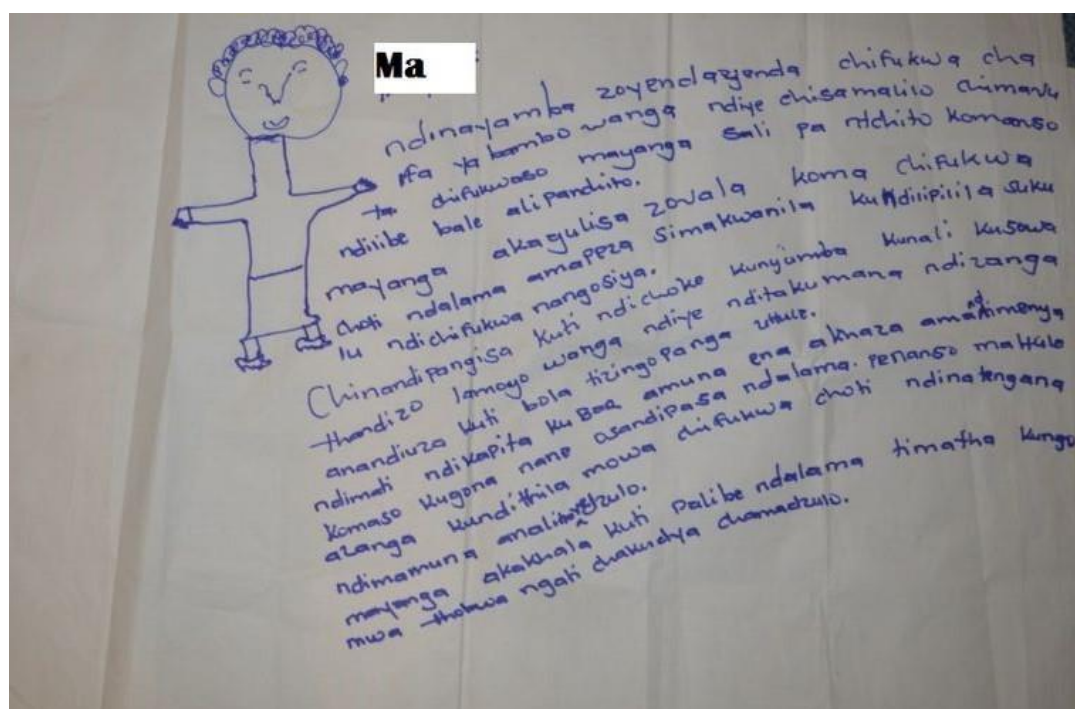 Ma
ndinayamba zoyendayenda chifukwa cha
ifa ya bambo wanga ndiye chisamalilo chimavu
ta chifukwaso mayanga sali pa ntchito komanso
ndilibe bale alipanchito.
mayanga akagulisa zovala koma chifukwa
choti ndalama amapeza simakwanila kundisipilila suku
lu ndichifukwa nangosiya.
Chinandipangisa kuti ndichoke kunyumba kunali kusowa
thandizo lamoyo wanga ndiye nditakumana ndizanga
anandiuza kuti bola tizingopanga uhule.
ndimati ndikapita ku Bar amuna ena akhaza amandimenya
komaso kugona nane osandipasa ndalama. penanso mahule
azanga kundithila mowa chifukwa choti ndinatengana
ndimamuna analinayedzulo.
mayanga akakhala kuti palibe ndalama timatha kungo
mwa thobwa ngati chakudya chamadzulo.